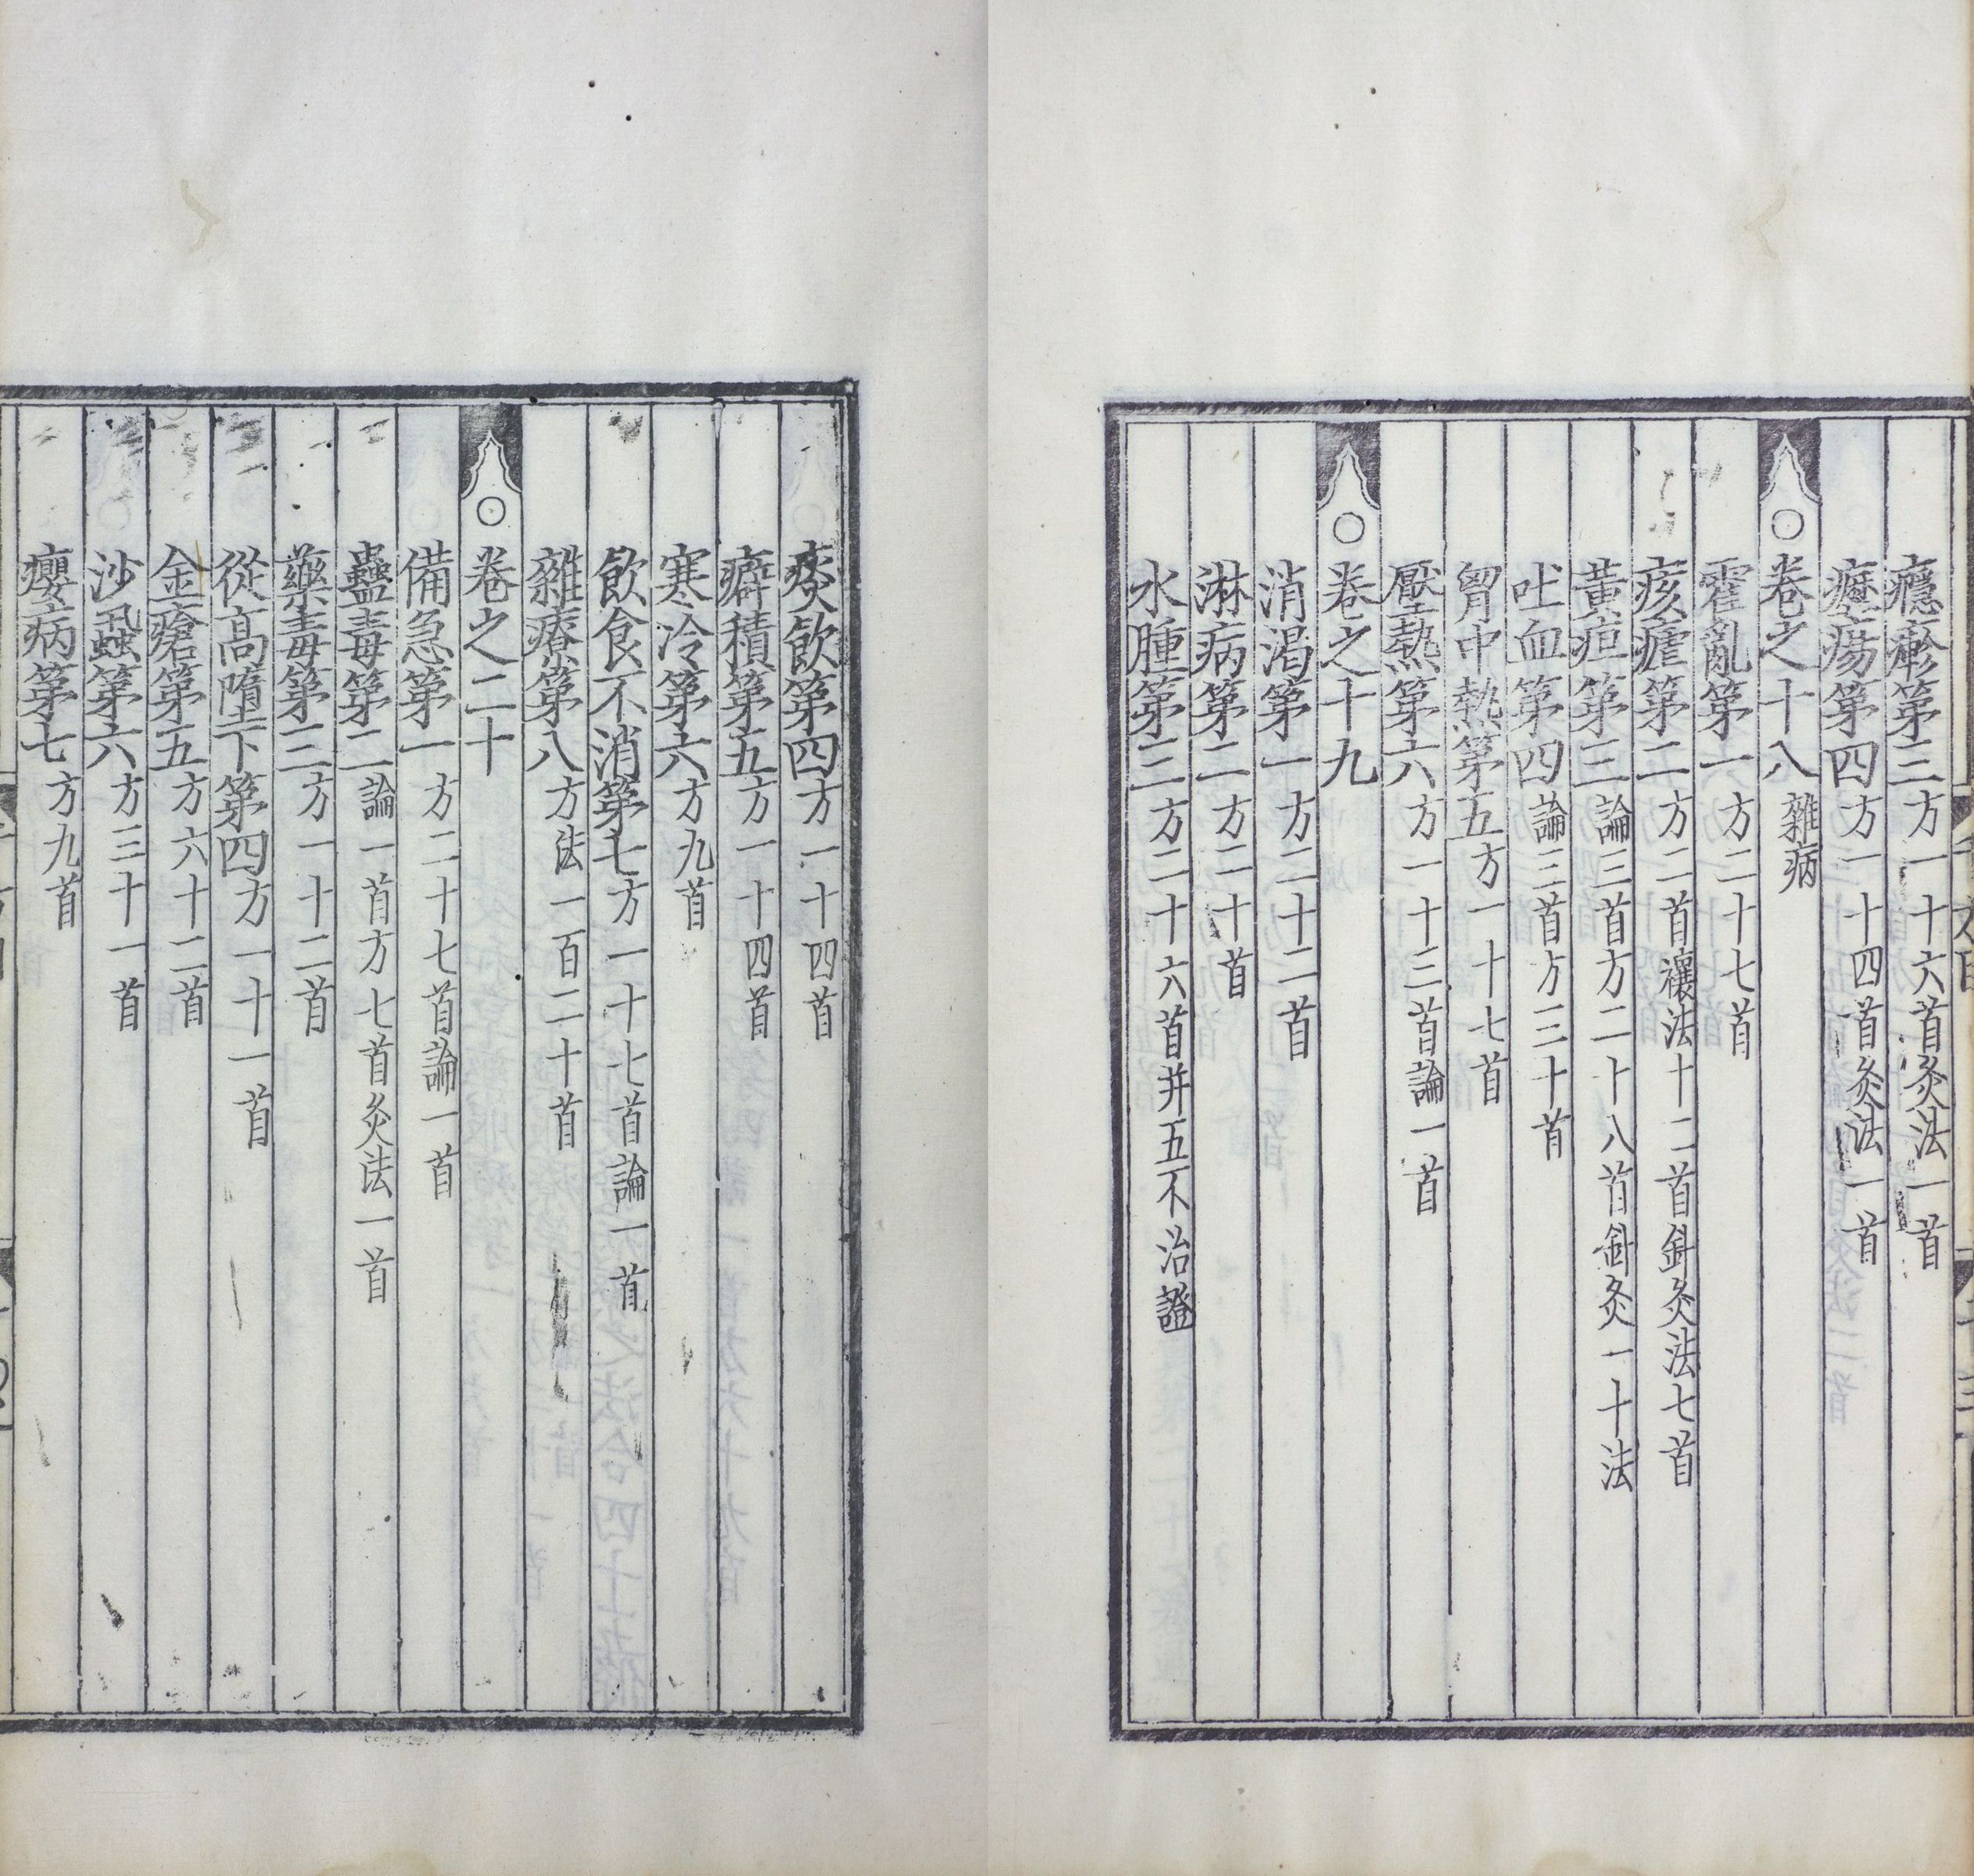 癮瘮第三方一十六首灸法一首
癧瘍第四方一十四首灸法一首
○卷之十八雜病
霍亂第一方二十七首
痎瘧第二方二首禳法十二首針灸法七首
黃疸第三論三首方二十八首針灸一十法
吐血第四論三首方三十首
胷中熱第五方一十七首
壓熱第六方一十三首論一首
○卷之十九
消渴第一方二十二首
淋病第二方二十首
水腫第三方二十六首并五不治證
痰飲第四方一十四首
癖積第五方一十四首
寒冷第六方九首
飲食不消第七方一十七首論一首
雜療第八方法一百二十首
○卷之二十
備急第一方二十七首論一首
蠱毒第二論一首方七首灸法一首
藥毒第三方一十二首
從高墮下第四方一十一首
金瘡第五方六十二首
沙虱第六方三十一首
癭病第七方九首